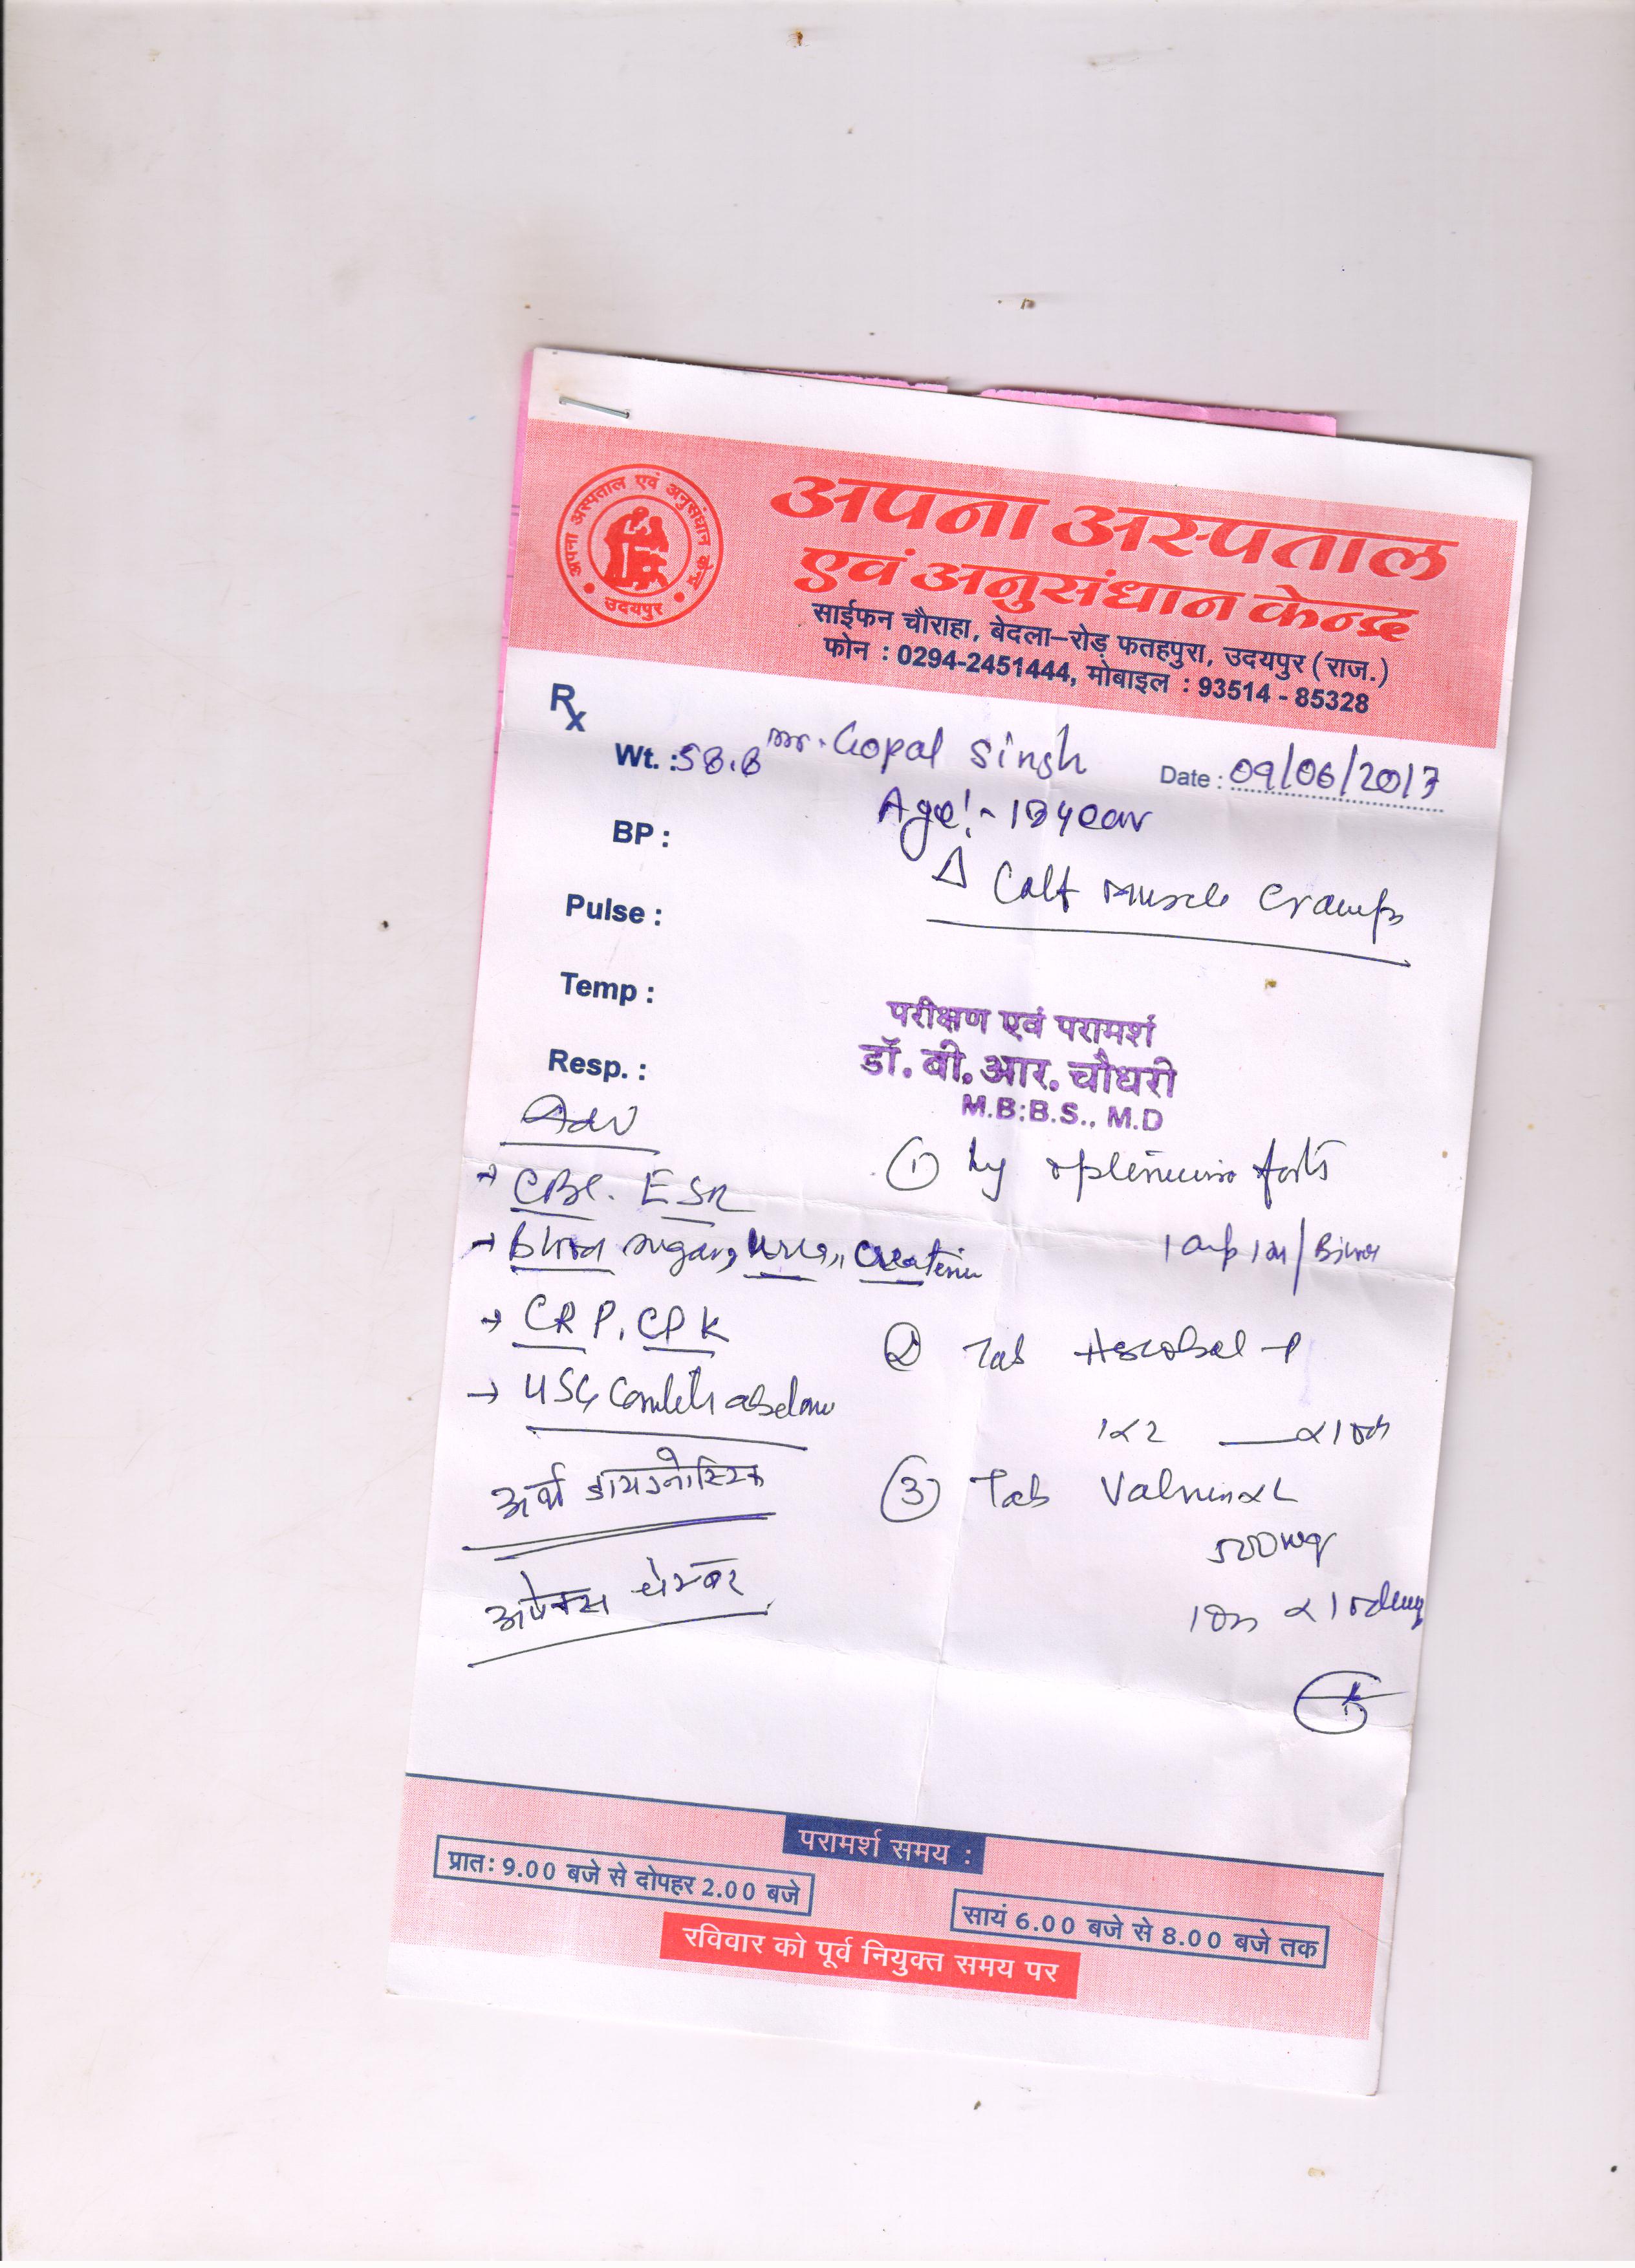 अपना अस्पताल एवं अनुसंधान केन्द्र
उदयपुर
अपना अस्पताल
एवं अनुसंधान केन्द्र
साईफन चौराहा, बेदला-रोड़ फतहपुरा, उदयपुर (राज.)
फोन : 0294-2451444, मोबाइल : 93514 - 85328
Rx
Wt. : 58.8 mr. Gopal Singh Date : 09/06/2017
Age:- 18 year
BP :
Δ Calf Muscle Cramps
Pulse :
Temp :
परीक्षण एवं परामर्श
डॉ. बी. आर. चौधरी
M.B.B.S., M.D
Resp. :
Adv
→ CBC. ESR
→ Blood sugar, urea, creatinin
→ CRP, CPK
→ USG abdomen
अर्थ डायग्नोस्टिक
अपेक्स चेम्बर
① forte
1 amp im /
② Tab
1x2
③ Tab
500mg
परामर्श समय :
प्रातः 9.00 बजे से दोपहर 2.00 बजे
सायं 6.00 बजे से 8.00 बजे तक
रविवार को पूर्व नियुक्त समय पर